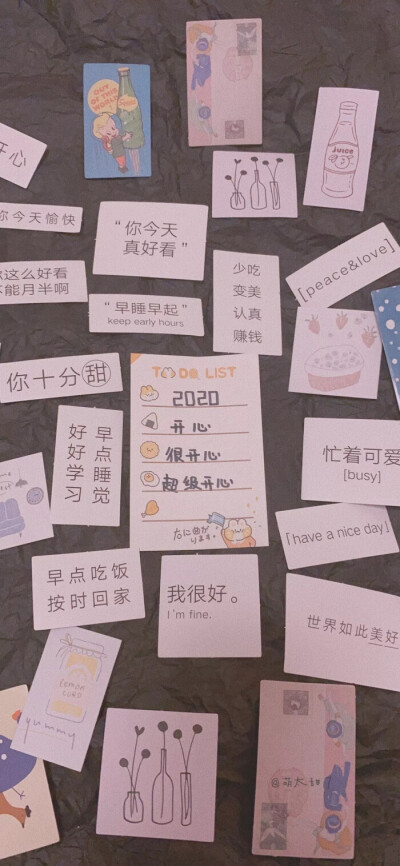 OUT
OF THIS
WORLD
Juice
开心
你今天愉快
“你今天
真好看”
这么好看
能月半啊
“早睡早起”
keep early hours
少吃
变美
认真
赚钱
[peace&love]
你十分甜
TO DO LIST
2020
开心
很开心
超级开心
早点睡觉
好好学习
忙着可爱
[busy]
「have a nice day」
早点吃饭
按时回家
我很好。
I'm fine.
世界如此美好
lemon
yummy
@萌太甜